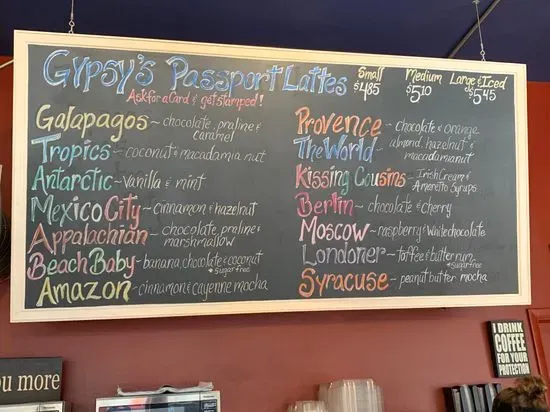 Gypsy's Passport Lattes
Ask for a Card & get stamped!
Small Medium Large & Iced
$4.85 $5.10 $5.45
Galapagos ~ chocolate, praline & caramel
Tropics ~ coconut & macadamia nut
Antarctic ~ Vanilla & mint
Mexico City ~ cinnamon & hazelnut
Appalachian ~ chocolate, praline & marshmallow
Beach Baby ~ banana, chocolate & coconut
*sugar free
Amazon ~ cinnamon & cayenne mocha
Provence ~ chocolate & orange
The World ~ almond, hazelnut & macadamia nut
Kissing Cousins ~ Irish Cream & Amaretto Syrups
Berlin ~ chocolate & cherry
Moscow ~ raspberry & white chocolate
Londoner ~ toffee & butter rum
*sugar free
Syracuse ~ peanut butter mocha
I DRINK
COFFEE
FOR YOUR
PROTECTION
ou more